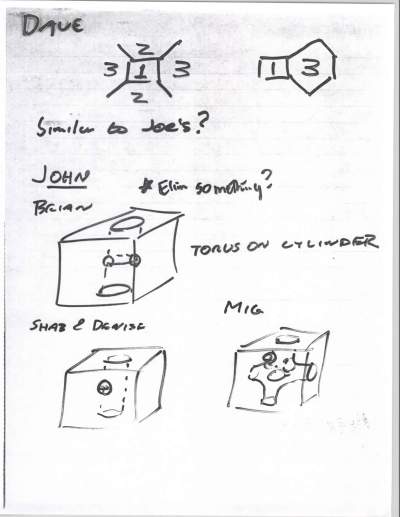 DAVE
2
3 1 3
2
1 3
Similar to Joe's?
JOHN
* Elim something?
BRIAN
TORUS ON CYLINDER
SHAB & DENISE
MIG